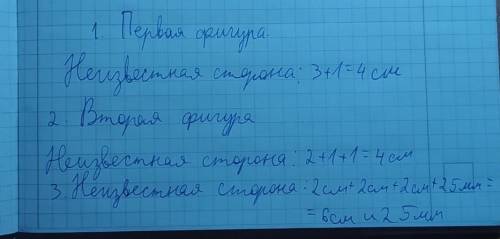 1. Первая фигура.
Неизвестная сторона: 3+1=4 см
2. Вторая фигура
Неизвестная сторона: 2+1+1=4 см
3. Неизвестная сторона: 2см+2см+2см+25мм=
=6см и 25мм